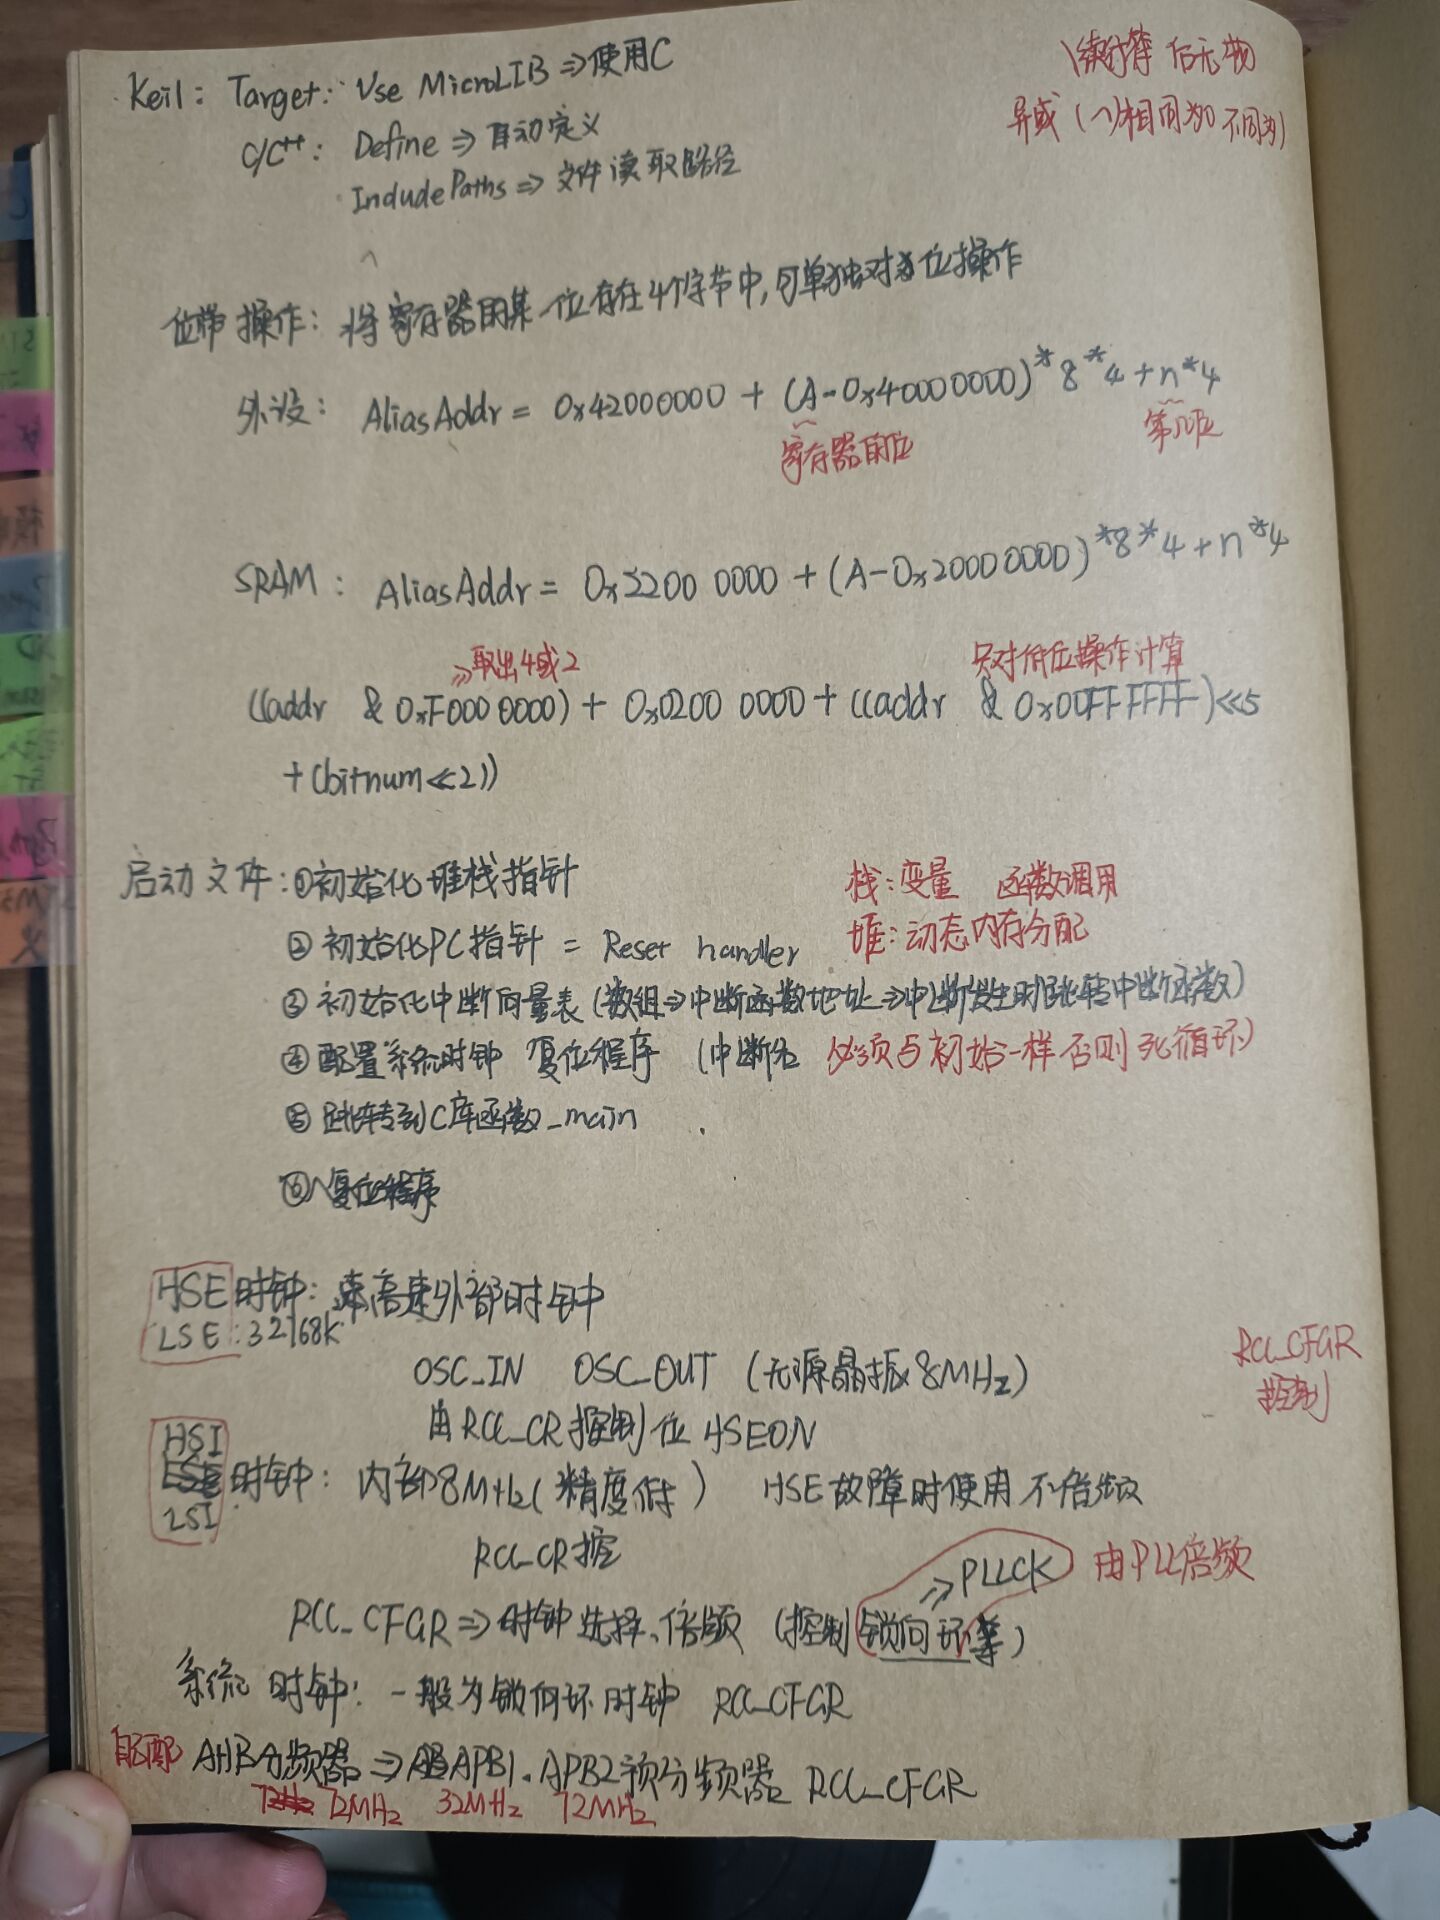 Keil: Target: Use MicroLIB⇒使用C
\续行符 后无物
异或(^)相同为0 不同为1
C/C++: Define⇒自动定义
IncludePaths⇒文件读取路径
位带操作: 将寄存器的某一位存在4个字节中,可单独对位操作
外设: AliasAddr = 0x42000000 + (A-0x40000000)*8*4+n*4
寄存器的位
第几位
SRAM: AliasAddr = 0x2200 0000 + (A-0x20000000)*8*4+n*4
取出4或2
只对低位操作计算
((addr & 0xF000 0000) + 0x0200 0000 + ((addr & 0x00FFFFFF)<<5
+(bitnum<<2))
启动文件: ①初始化堆栈指针
栈:变量 函数调用
②初始化PC指针 = Reset handler
堆:动态内存分配
③初始化中断向量表(数组⇒中断函数地址⇒中断发生时跳转中断函数)
④配置系统时钟 复位程序 (中断名 必须与初始一样否则死循环)
⑤跳转到C库函数_main
⑥复位程序
HSE时钟: 高速外部时钟
LSE:32768K
OSC_IN OSC_OUT (无源晶振8MHz)
RCC_CFGR
控制
由RCC_CR控制位HSEON
HSI
时钟: 内部8MHz(精度低) HSE故障时使用 不倍频
LSI
RCC_CR控
⇒PLLCK 由PLL倍频
RCC_CFGR⇒时钟选择、倍频 (控制锁向环等)
系统时钟: 一般为锁向环时钟 RCC_CFGR
AHB分频器⇒APB1、APB2预分频器 RCC_CFGR
72MHz 32MHz 72MHz